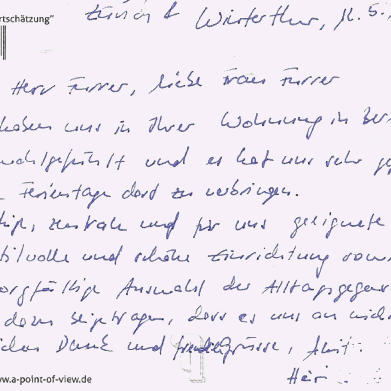 rtschätzung"
Zürich & Winterthur, 12.5.
Herr Furrer, liebe Frau Furrer
haben uns in Ihrer Wohnung in Ber
wohlgefühlt und es hat uns sehr ge
Ferientage dort zu verbringen.
hige, zentrale und für uns geeignete
tilvolle und schöne Einrichtung sow
orgfältige Auswahl der Alltagsgegen
dazu beigetragen, dass es uns an nich
Dank und Grüsse,
Hei
ww.a-point-of-view.de